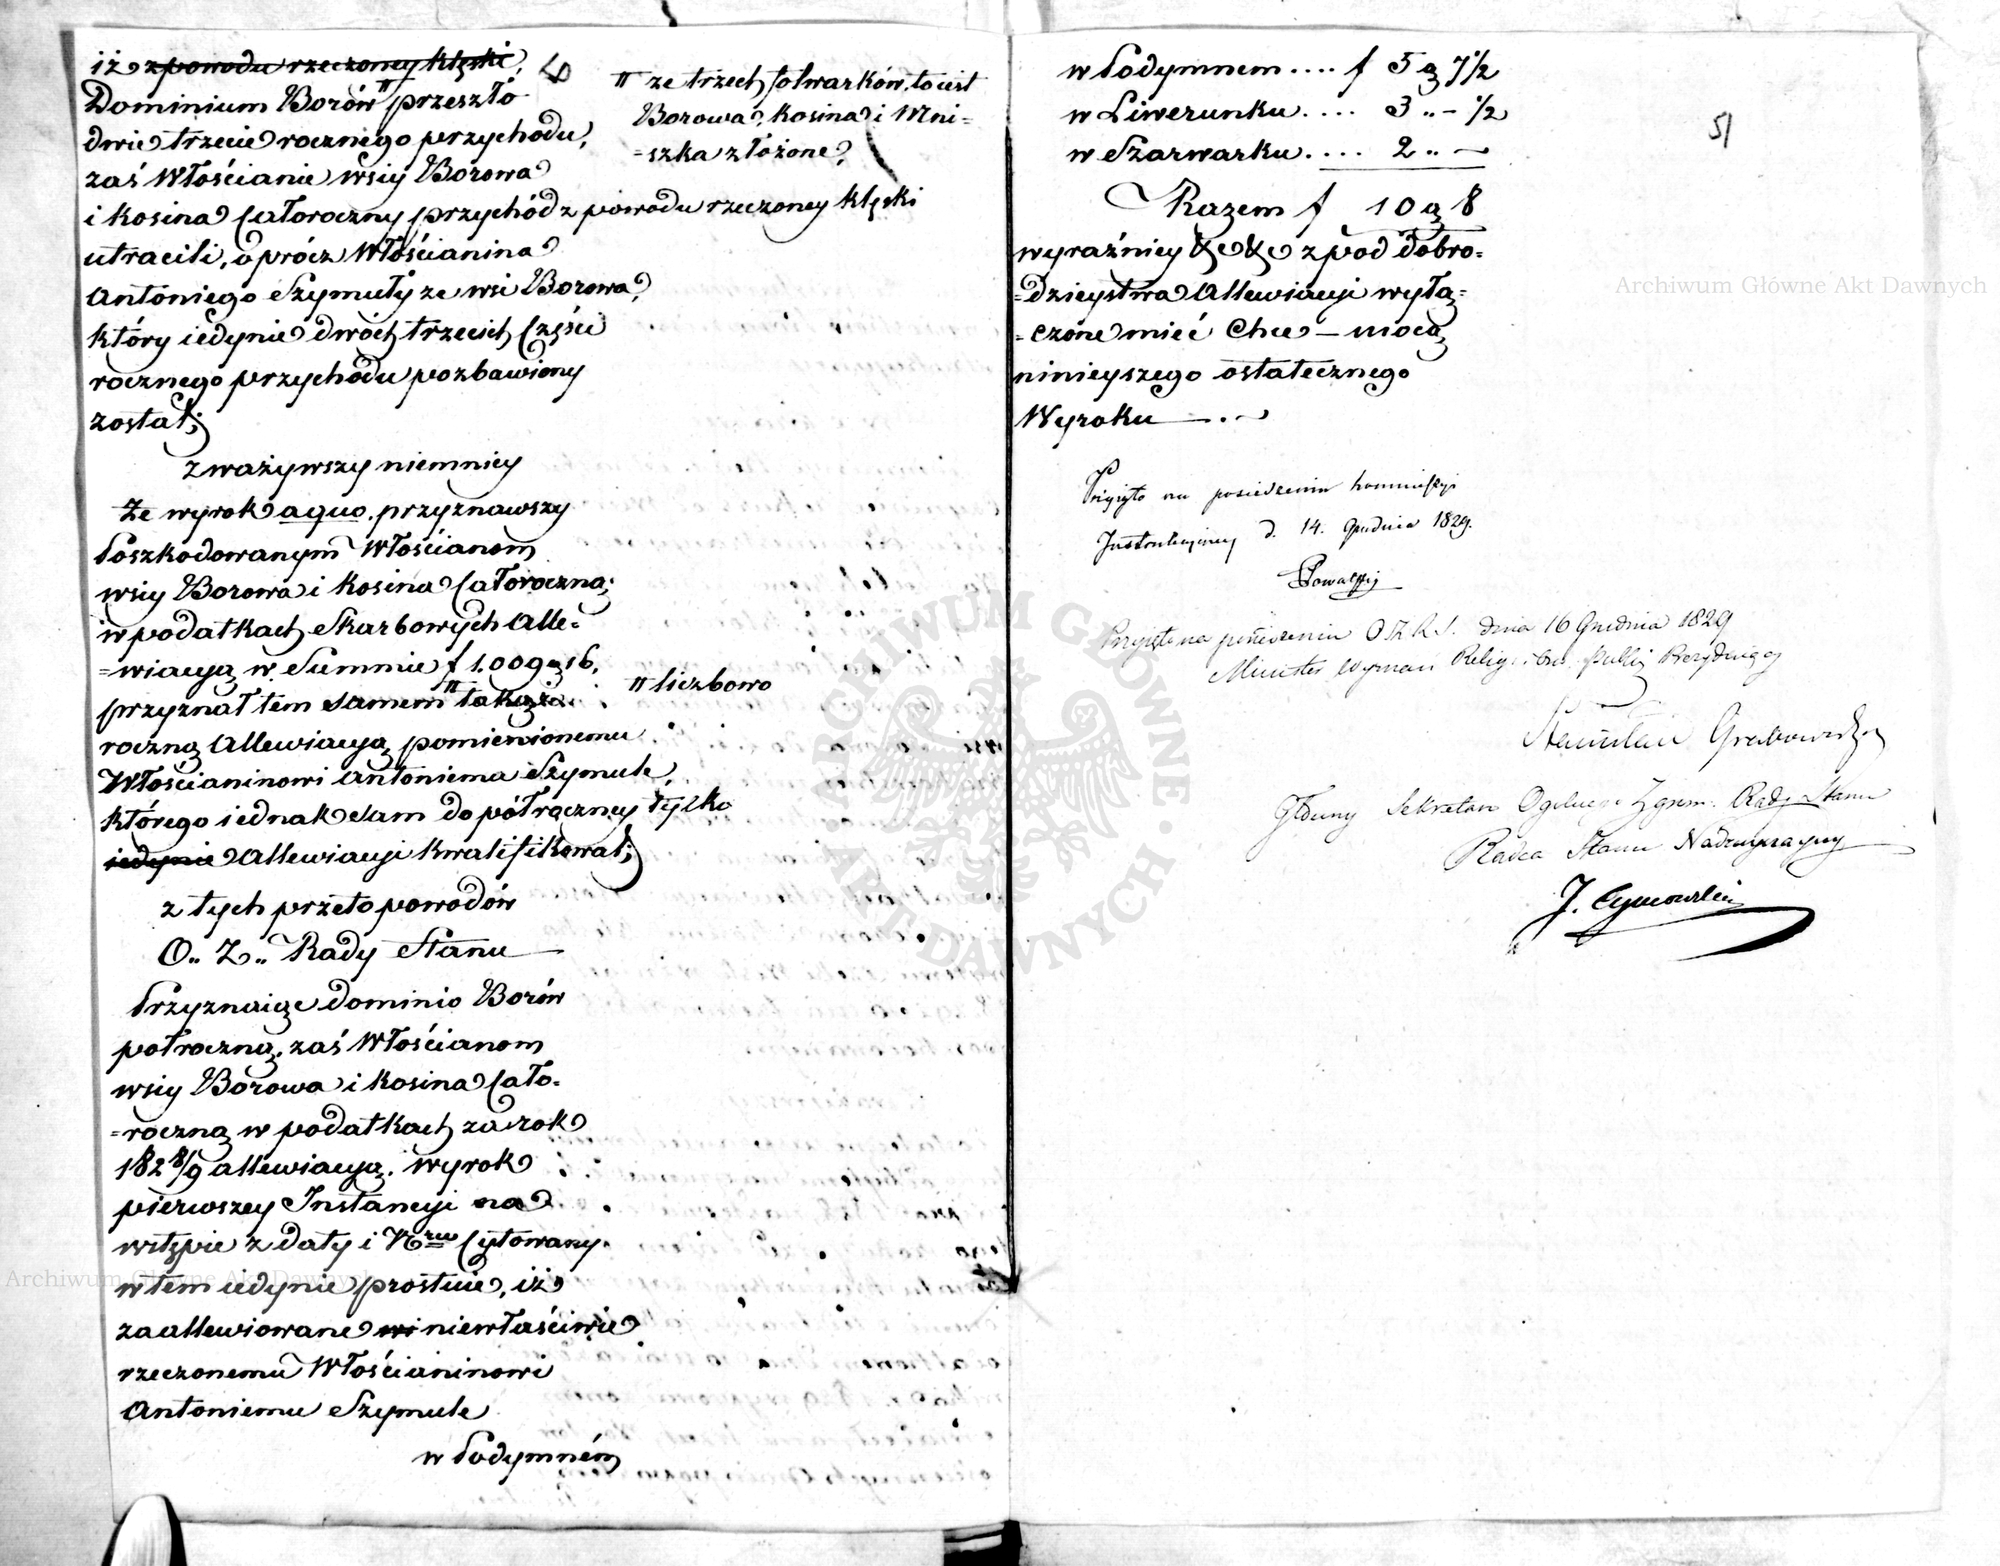 iż z powodu rzeczoney klęski,
Dominium Borów przeszło
dwie trzecie rocznego przychodu,
zaś Włościanie wsiy Borowa
i Kosina całoroczny przychód z powodu rzeczoney klęski
utracili, oprócz Włościanina
Antoniego Szymuły ze wsi Borowa,
który iedynie dwóch trzecich części
rocznego przychodu pozbawiony
został;
zważywszy niemniey
że wyrok a quo przyznawszy
Poszkodowanym Włościanom
wsiy Borowa i Kosina całoroczną
w podatkach Skarbowych Alle=
=wiacyą w Summie f 1.009 g 16.
przyznał tem samem takąż
roczną Allewiacyą pomienionemu
Włościaninowi Antoniemu Szymule,
którego iednak sam do półroczney tylko
iedynie Allewiacyi kwalifikował;
z tych przeto powodów
O.. Z.. Rady Stanu
Przyznaiąc Dominio Borów
półroczną, zaś Włościanom
wsiy Borowa i Kosina cało=
=roczną w podatkach za rok
1828/9 allewiacyą, wyrok
pierwszey Instancyi na
wstępie z daty i Nru cytowany
w tem iedynie prostuie, iż
zaallewiowane niewłaściwie
rzeczonemu Włościaninowi
Antoniemu Szymule
w Podymném
" ze trzech folwarków, to iest
Borowa, Kosina i Mni=
=szka złożone,
" liczbowo
51
w Podymnem .... f 5 g 7½
w Liwerunku .... 3 .. – ½
w Szarwarku .... 2 .. –
Razem f 10 g 8
wyraźniey &c &c z pod dobro=
=dzieystwa Allewiacyi wyłą=
=czone mieć chce – mocą
ninieyszego ostatecznego
Wyroku
Przyięto na posiedzeniu Kommissyi
Instrukcyiney d. 14. Grudnia 1829.
Przyięto na posiedzeniu O Z R S. dnia 16 Grudnia 1829
Minister Wyznań Relig: i Ośw: Publ: Prezyduiący
Stanisław Grabowski
Główny Sekretarz Ogólnego Zgrom: Rady Stanu
Radca Stanu Nadzwyczayny
Archiwum Główne Akt Dawnych
Archiwum Główne Akt Dawnych
ARCHIWUM GŁÓWNE · AKT DAWNYCH ·